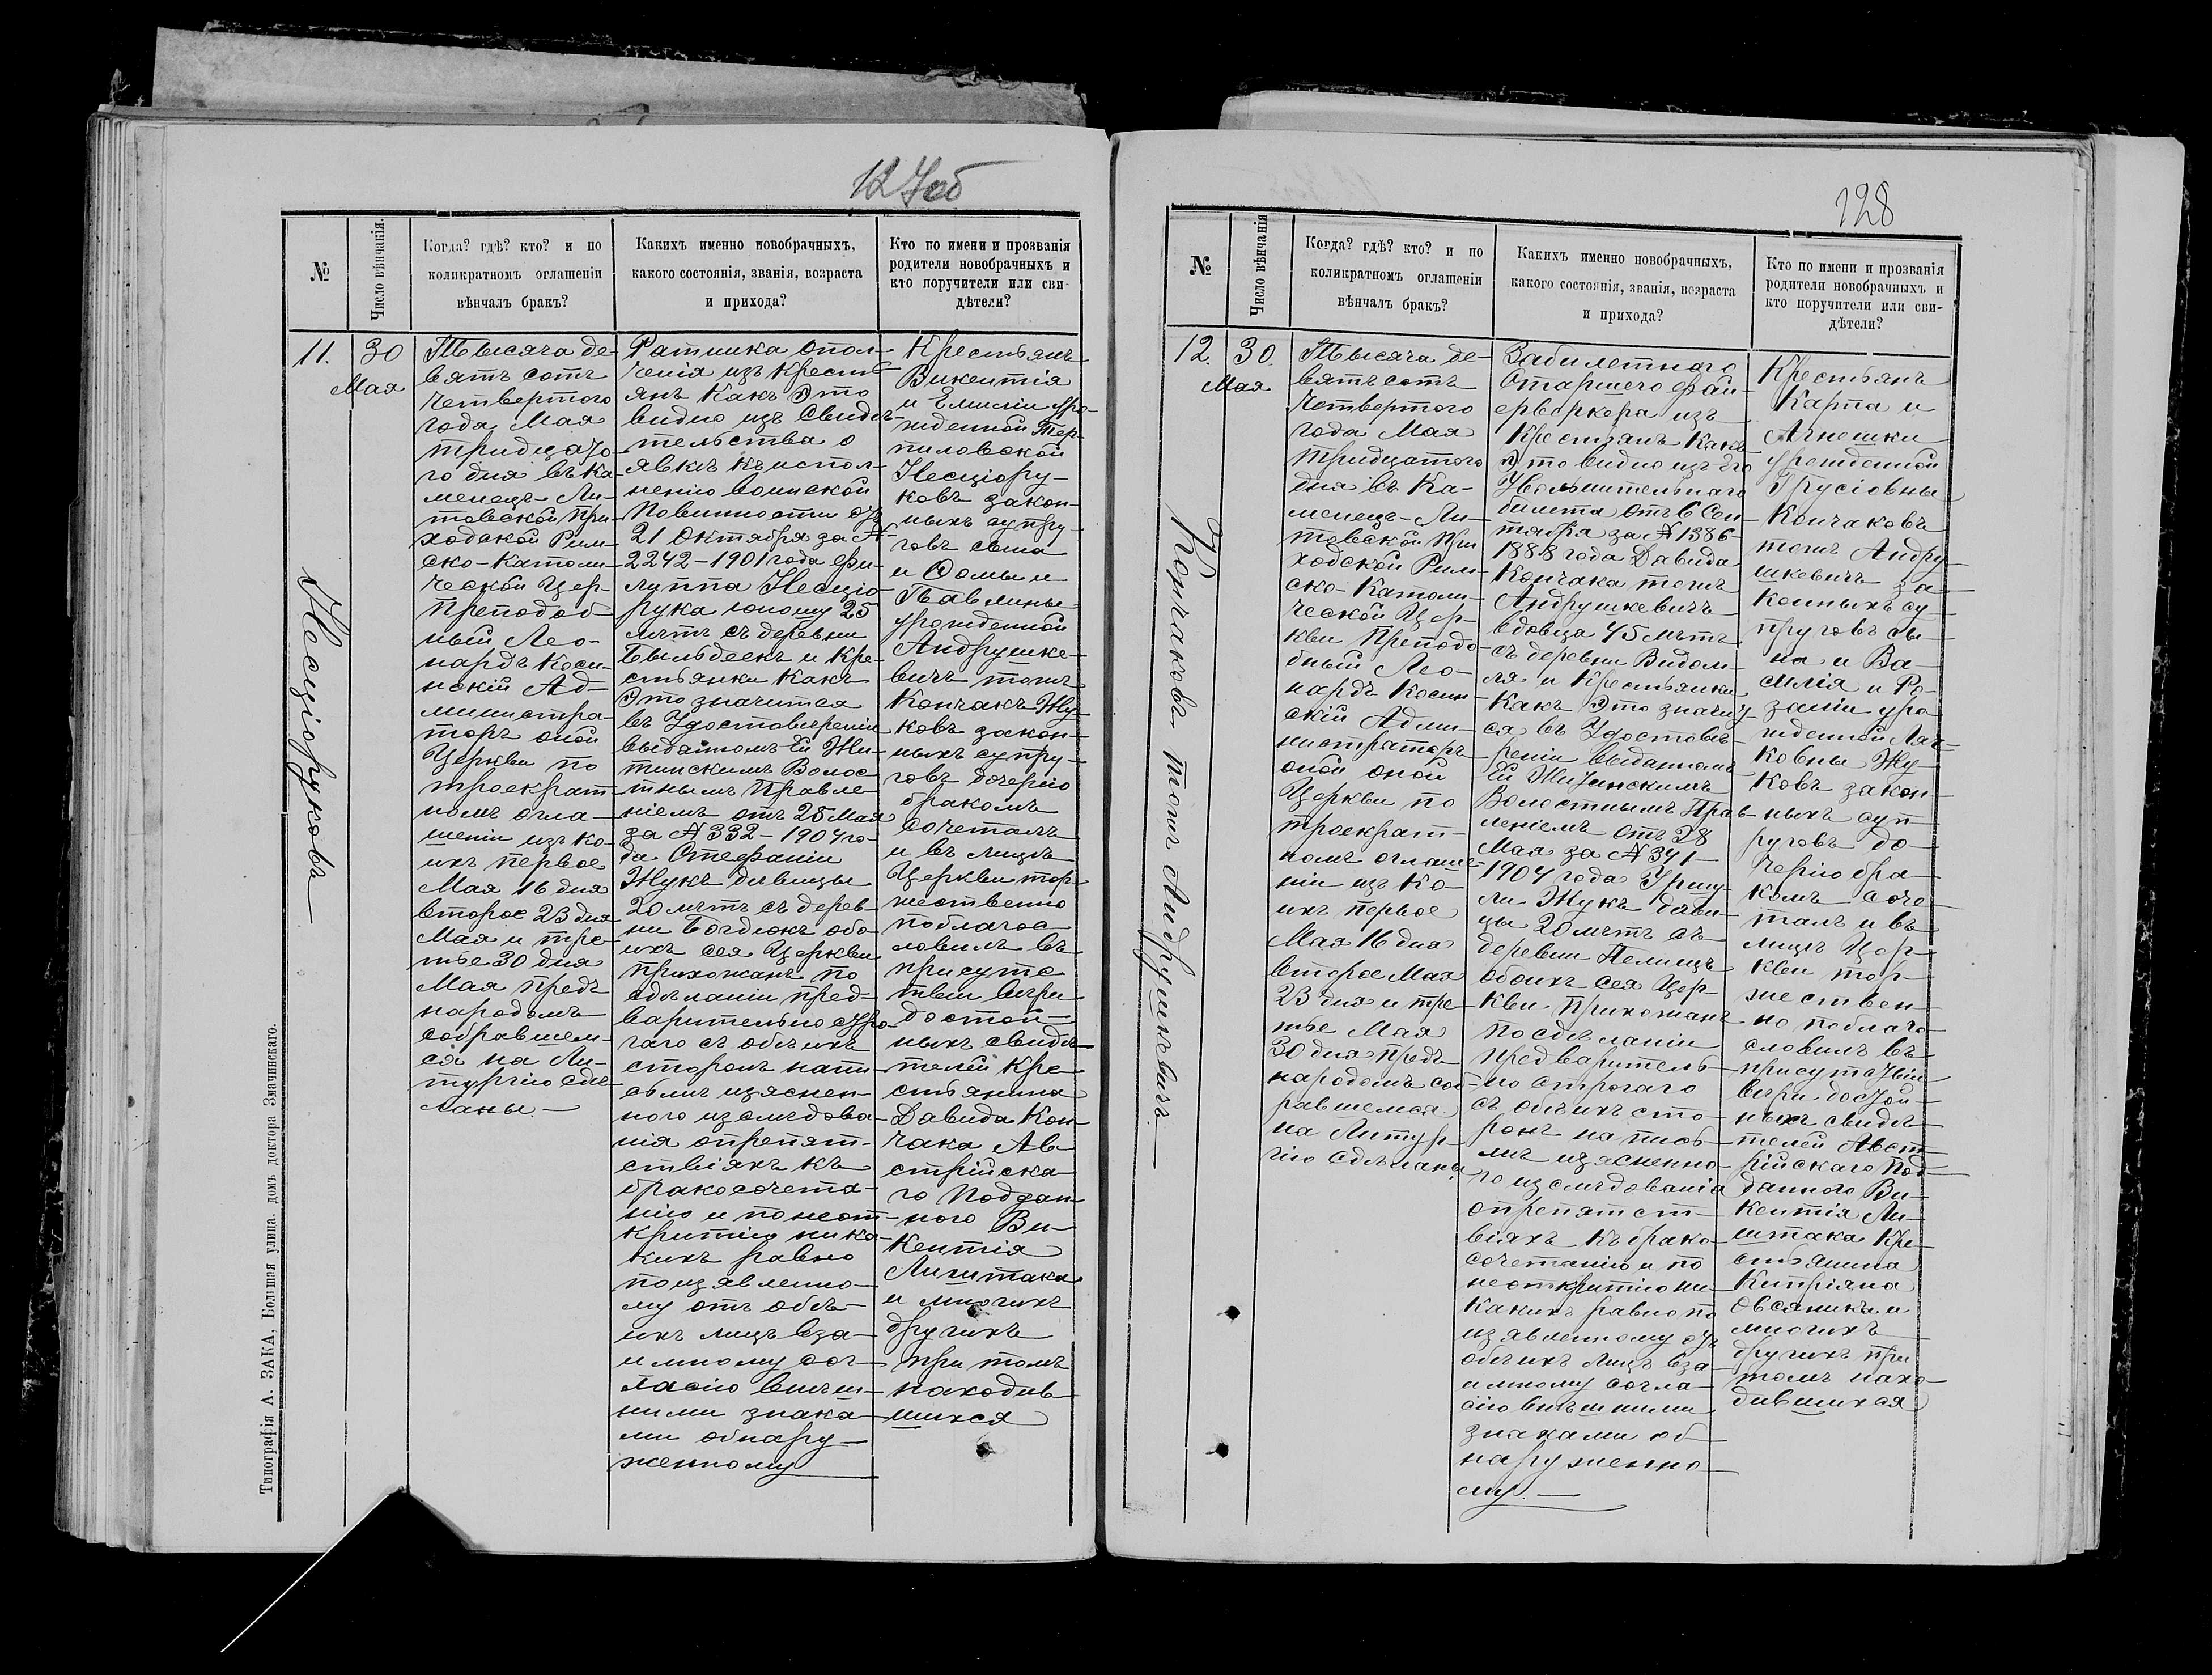 127об
№
Число вѣнчанія.
Когда? гдѣ? кто? и по
коликратномъ оглашеніи
вѣнчалъ бракъ?
Какихъ именно новобрачныхъ,
какого состоянія, званія, возраста
и прихода?
Кто по имени и прозванія
родители новобрачныхъ и
кто поручители или сви-
дѣтели?
11.
30
Мая
Несціоруковъ
Тысяча де-
вятъ сотъ
четвертого
года Мая
тридцато-
го дня въ Ка-
менецъ-Ли-
товской При-
ходской Рим-
ско-Католи-
ческой Цер-
Преподоб-
ный Лео-
нардъ Коси-
нскій Ад-
министра-
торъ оной
Церкви по
троекрат-
номъ огла-
шеніи изъ ко-
ихъ первое
Мая 16 дня
второе 23 дня
Мая и тре-
тье 30 дня
Мая предъ
народомъ
собравшем-
ся на Ли-
тургію сдѣ-
ланы.—
Ратника опол-
ченія изъ крестъ-
янъ какъ это
видно изъ Свидѣ-
тельства о
явкѣ къ испол-
ненію воинской
Повинности отъ
21 Октября за №
2242-1901 года Фи-
луппа Несціо-
рука юношу 25
лѣтъ съ деревни
Быльдеекъ и Кре-
стьянки какъ
Это значится
въ Удостовѣреніи
выданномъ Ей Жи-
тинскимъ Волос-
тнымъ Правле-
ніемъ отъ 25 Мая
за № 332-1904 го-
да Стефаніи
Жукъ дѣвицы
20 лѣтъ съ дерев-
ни Богдюкъ обо-
ихъ сея Церкви
прихожанъ по
сдѣланіи пред-
варительно стро-
гаго съ обѣихъ
сторонъ напи-
сьмѣ изяснен-
ного изслѣдова-
нія опрепят-
ствіяхъ къ
бракосочета-
нію и по неот-
критію ника-
кихъ равно
поизявленно-
му отъ обѣ-
ихъ лицъ вза-
имному сог-
ласію внѣш-
ними знака-
ми обнару-
женному
Крестьянъ
Викентія
и Емиліи уро-
жденной Тер-
пиловской
Несціору-
ковъ закон-
ныхъ супру-
говъ сына
и Ѳомы и
Павлины
урожденной
Андрушке-
вичъ тожъ
Кончакъ Жу-
ковъ закон-
ныхъ супру-
говъ дочерію
бракомъ
сочеталъ
и въ лицѣ
Церкви тор-
жественно
поблагос-
ловилъ въ
присутс-
твіи вѣри-
достой-
ныхъ свидѣ-
телей Кре-
стьянина
Давида Кон-
чака Ав-
стрійска-
го Поддан-
ного Ви-
кентія
Лиштака
и многихъ
другихъ
при томъ
находив-
шихся
Типографія А. ЗАКА, Большая улица. домъ доктора Змачинскаго.
128
№
Число вѣнчанія
Когда? гдѣ? кто? и по
коликратномъ оглашеніи
вѣнчалъ бракъ?
Какихъ именно новобрачныхъ,
какого состоянія, званія, возраста
и прихода?
Кто по имени и прозванія
родители новобрачныхъ и
кто поручители или сви-
дѣтели?
12.
30.
Мая
Кончаковъ тожъ Андрушкевичъ.—
Тысяча де-
вятъ сотъ
четвертого
года Мая
тридцатого
дня въ Ка-
менецъ-Ли-
товской При
ходской Рим-
ско-Католи-
ческой Цер-
кви Преподо-
бный Лео-
нардъ Косин-
скій Адми-
нистраторъ
оной оной
Церкви по
троекрат-
номъ оглаше-
ніи изъ ко-
ихъ первое
Мая 16 дня
второе Мая
23 дня и тре-
тье Мая
30 дня предъ
народомъ соб-
равшемся
на Литур-
гію сдѣланы.
Забилетного
Старшего фей-
ерворкера изъ
Крестьянъ какъ
это видно изъ его
Увольнительнаго
билета отъ 6 Сен-
тября за № 1386-
1888 года Давида
Кончака тожъ
Андрушкевичъ
вдовца 45 лѣтъ
съ деревни Видом-
ля и Крестьянки
Какъ Это значит-
ся въ Удостовѣ-
реніи выданномъ
Ей Житинскимъ
Волостнымъ Прав-
леніемъ отъ 28
Мая за № 341-
1904 года Уршу-
ли Жукъ дѣви-
цы 20 лѣтъ съ
деревни Пелищъ
обоихъ сея Цер-
кви прихожанъ
по сдѣланіи
предварительно-
но строгаго
съ обѣихъ сто-
ронъ напись-
мѣ изясненно-
го изслѣдованія
опрепятст-
віяхъ къ брако-
сочетанію и по
неоткритію ни-
какихъ равно по
изявленному отъ
обѣихъ лицъ вза-
имному согла-
сію внѣшними
знаками об-
наруженно-
му.—
Крестьянъ
Карпа и
Агнешки
урожденной
Трусіовны
Кончаковъ
тожъ Андру-
шкевичъ за-
конныхъ су-
пруговъ сы-
на и Ва-
силія и Ро-
заліи уро
жденной Ляч-
ковны Жу-
ковъ закон-
ныхъ суп-
руговъ до-
черію бра-
комъ соче-
талъ и въ
лицѣ Цер-
кви тор-
жествен-
но поблаго-
словилъ въ
присутствіи
вѣри достой-
ныхъ свидѣ-
телей Авст-
рійскаго Под-
данного Ви-
кентія Ли-
штака Кре-
стьянина
Кипріяна
Овсяника и
многихъ
другихъ при
томъ нахо-
дившихся